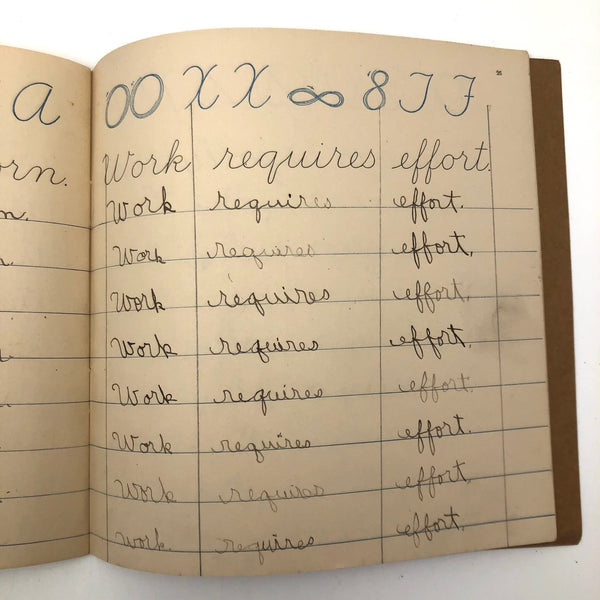 a OO X X ∞ 8 J F
orn. Work requires effort.
n. Work requires effort.
Work requires effort.
Work requires effort.
Work requires effort.
Work requires effort.
Work requires effort.
Work requires effort.
Work requires effort.